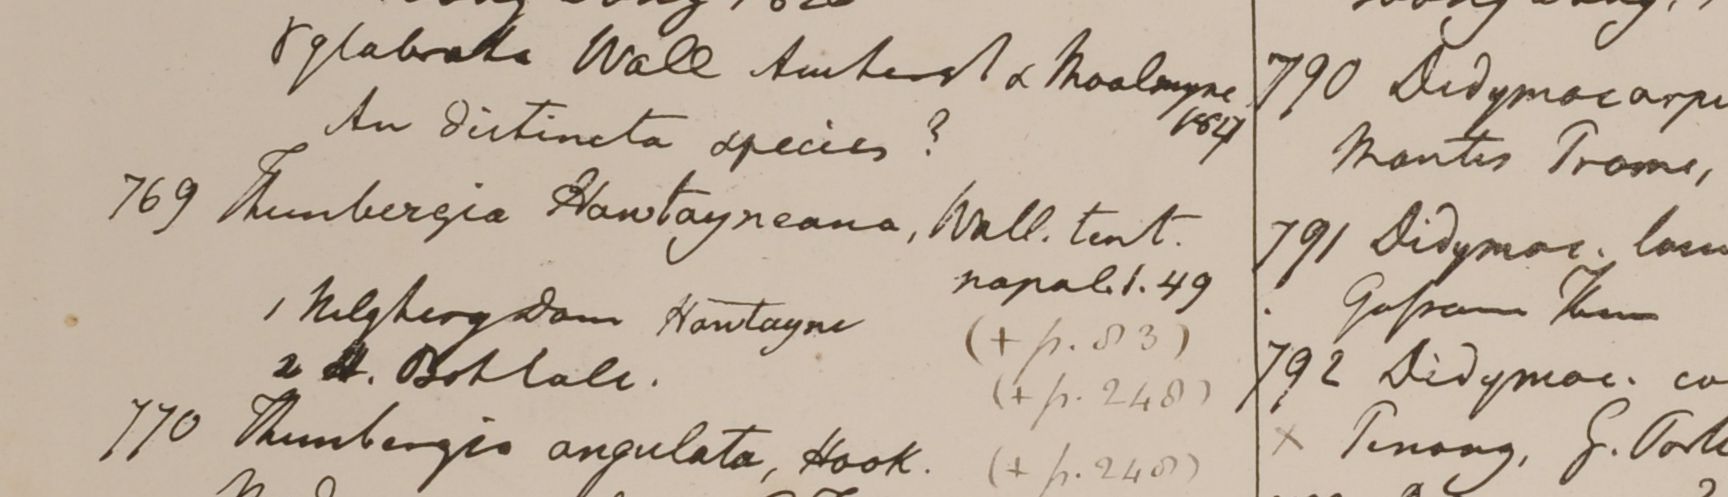 γ glabrata Wall Amherst & Moalmyne
1827
An distincta species?
769 Thunbergia Hawtayneana, Wall. tent.
napal. 1. 49
1 Nelghery Dom Hawtayne
(+ p. 83)
2 H. Bot Calc.
(+ p. 248)
770 Thunbergia angulata, Hook.
(+ p. 248)
790 Didymocarpu
Montis Prome,
791 Didymoc.
792 Didymoc. co
× Penang, G. Port